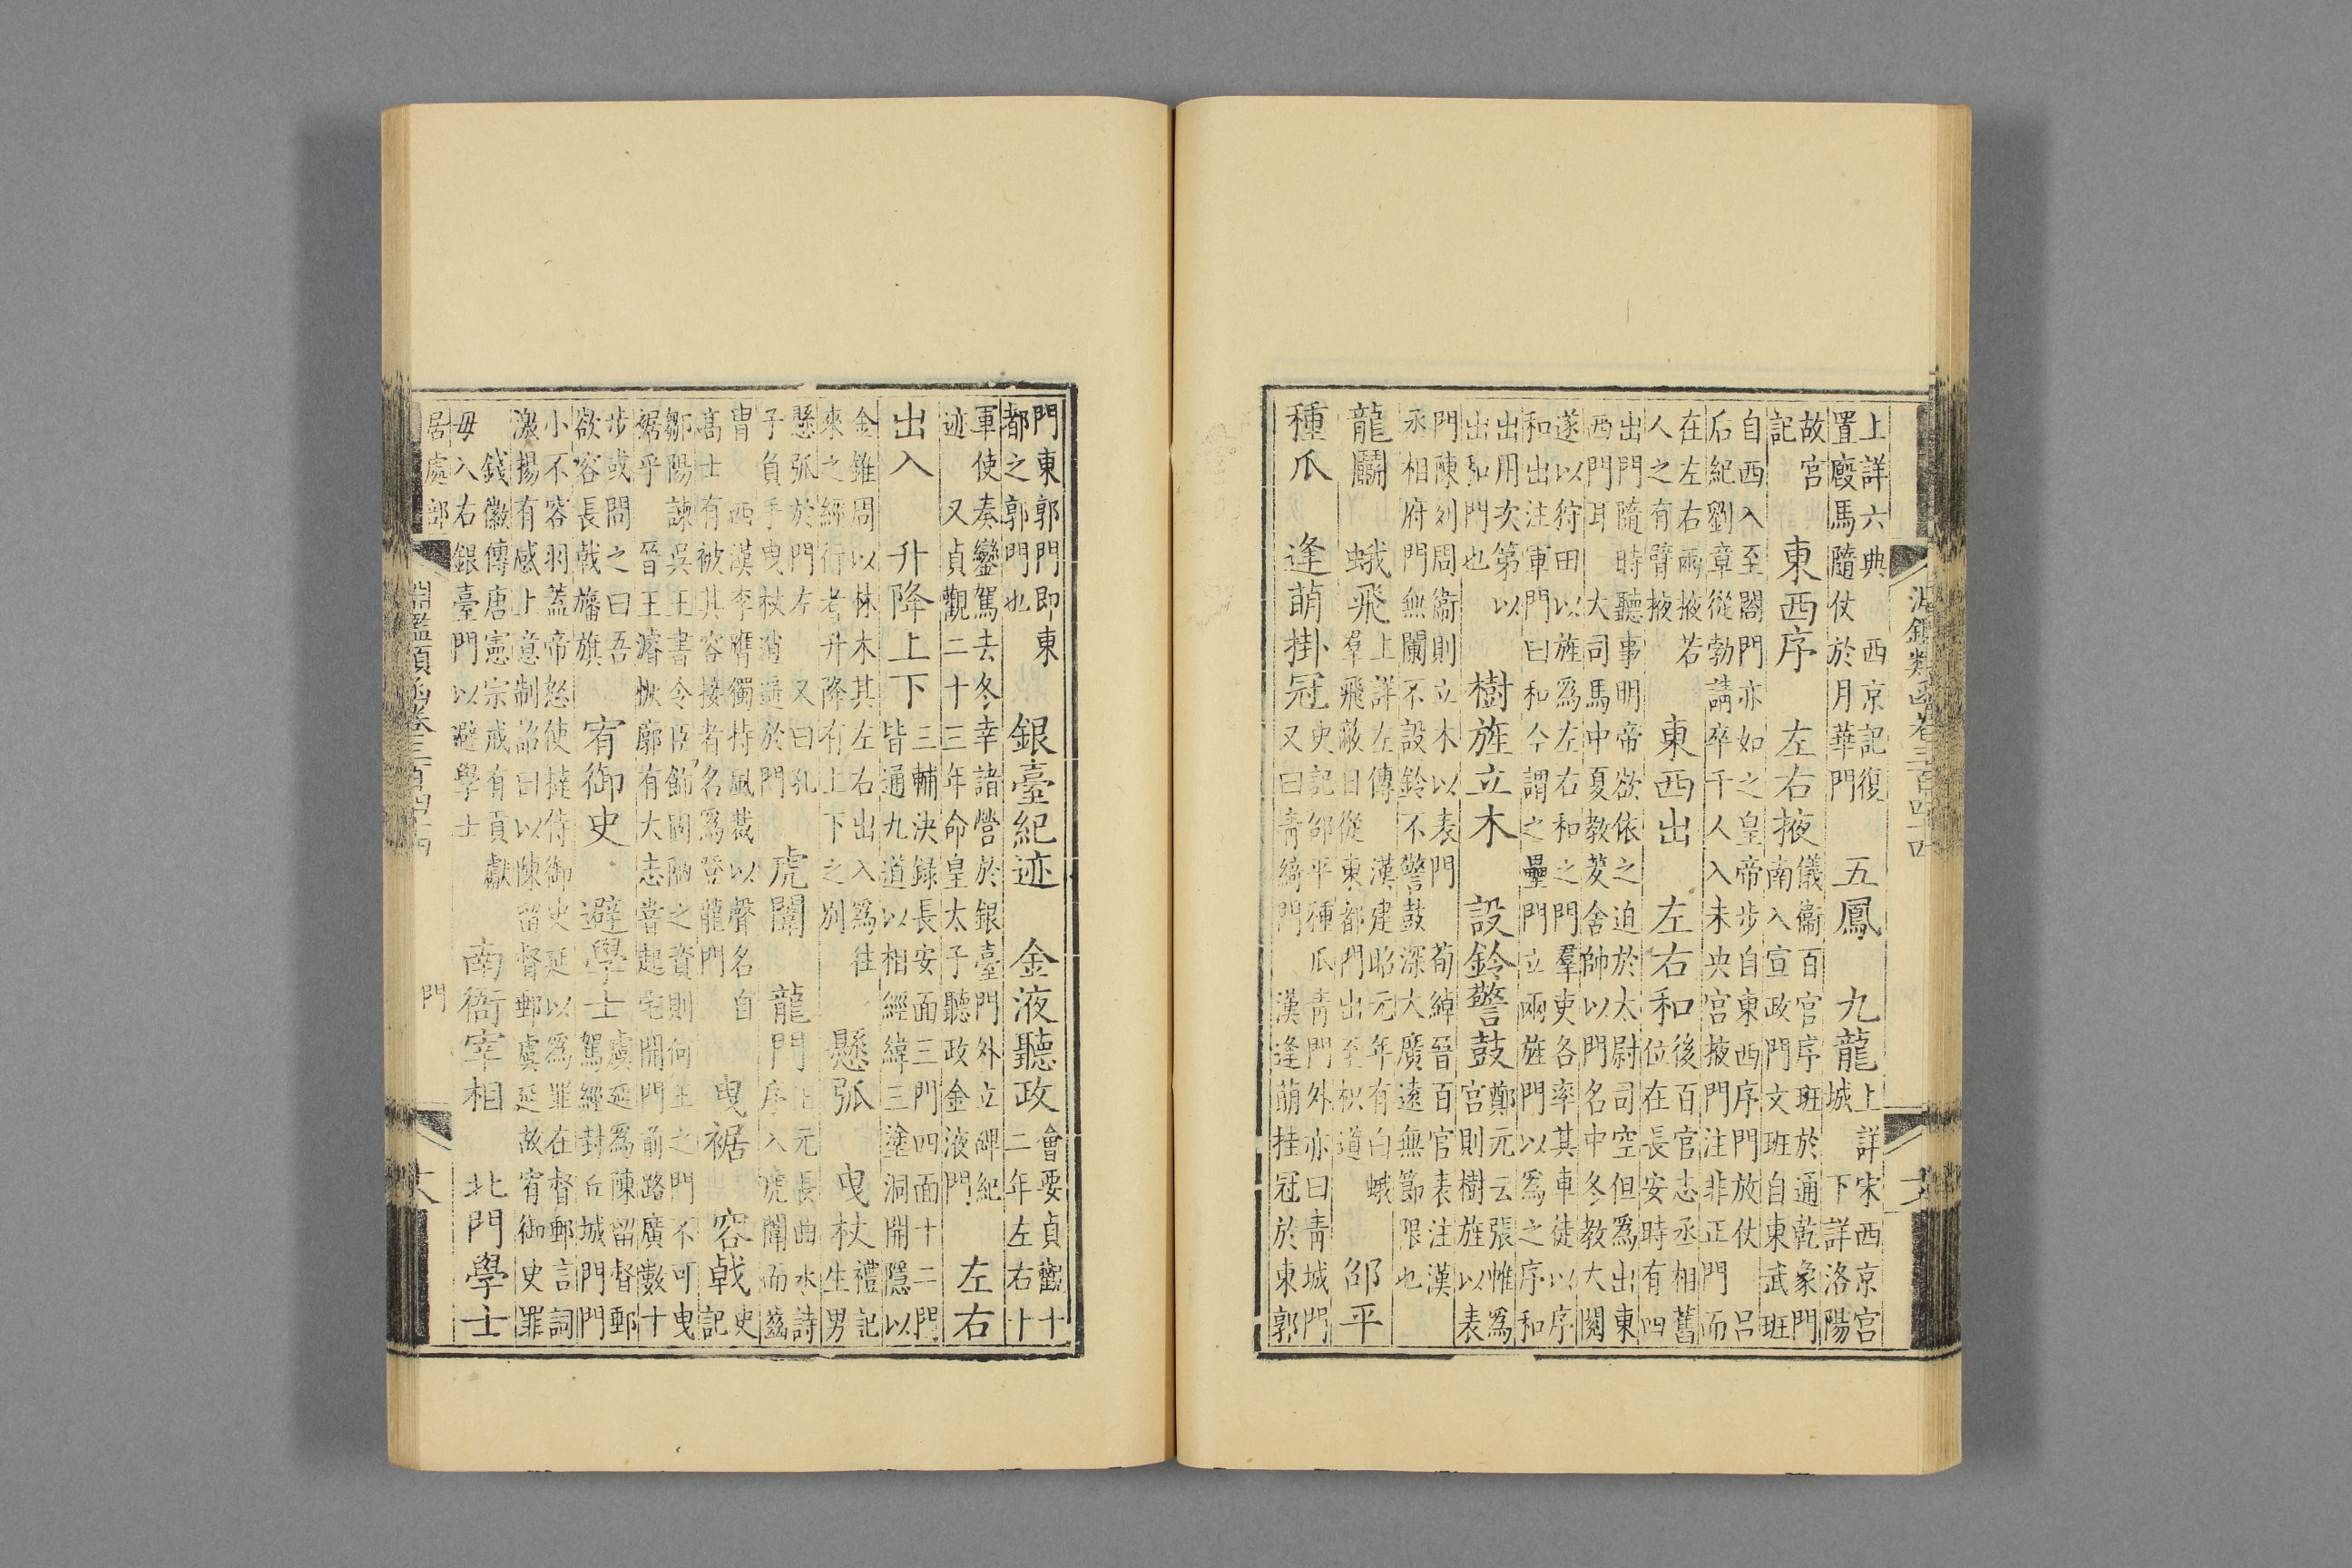 淵鑑類函卷三百四十四
上詳六典 西京記復
置廄馬隨仗於月華門
五鳳 九龍
上詳宋西京宮
城 下詳洛陽
故宮
記
東西序 左右掖
儀衞百官序班於通乾象門
南入宣政門文班自東武班
自西入至閤門亦如之皇帝步自東西序門放仗 呂
后紀劉章從勃請卒千人入未央宮掖門注非正門而
在左右兩掖若
人之有臂掖
東西出 左右和
後百官志丞相舊
位在長安時有四
出門隨時聽事明帝欲依之迫於太尉司空但爲出東
西門耳 大司馬中夏教茇舍帥以門名中冬教大閱
遂以狩田以旌爲左右和之門羣吏各率其車徒以序
和出注軍門曰和今謂之壘門立兩旌門以爲之序和
出用次第以
出和門也
樹旌立木 設鈴警鼓
鄭元云張帷爲
宮則樹旌以表
門陳列周衞則立木以表門 荀綽晉百官表注漢
丞相府門無闌不設鈴不警鼓深大廣遠無節限也
龍鬭 蛾飛
上詳左傳 漢建昭元年有白蛾
羣飛蔽日從東都門出至枳道
邵平
種瓜 逢萌掛冠
史記邵平種瓜青門外亦曰青城門
又曰青綺門 漢逢萌挂冠於東郭
門東郭門即東
都之郭門也
銀臺紀迹 金液聽政
會要貞觀十
二年左右十
軍使奏鑾駕去冬幸諸營於銀臺門外立碑紀
迹 又貞觀二十三年命皇太子聽政金液門
左右
出入 升降上下
三輔決録長安面三門四面十二門
皆通九道以相經緯三塗洞開隱以
金錐周以林木其左右出入爲往
來之經行者升降有上下之別
懸弧 曳杖
禮記
生男
懸弧於門左 又曰孔
子負手曳杖消遥於門
虎闈 龍門
上元長曲水詩
序入虎闈而齒
胄 西漢李膺獨持風裁以聲名自
高士有被其容接者名爲登龍門
曳裾 容戟
史
記
鄒陽諫吳王書令臣飾固陋之資則何王之門不可曳
裾乎 晉王濬恢廓有大志嘗起宅開門前路廣數十
步或問之曰吾
欲容長戟旛旗
宥御史 避學士
虞延爲陳留督郵
駕經封丘城門門
小不容羽蓋帝怒使撻侍御史延以爲罪在督郵言詞
激揚有感上意制詔曰以陳留督郵虞延故宥御史罪
錢徽傳唐憲宗戒有貢獻
毋入右銀臺門以避學士
南衙宰相 北門學士
居處部
淵鑑類函卷三百四十四
門